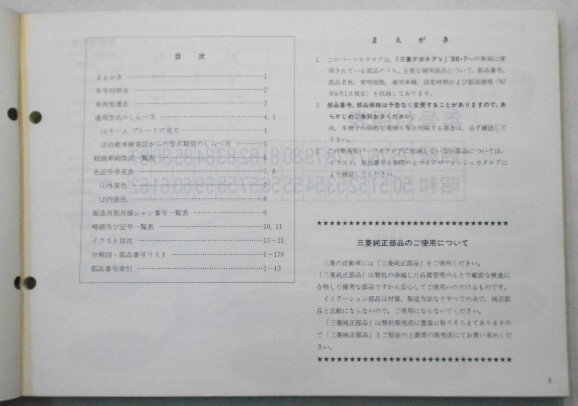 目次
まえがき 1
車号対照表 2
車両変遷表 3
適用型式のしらべ方 4, 5
(1)ネーム プレートの見方 4
(2)自動車検査証からの型式類別のしらべ方 5
収録車両型式一覧表 6
色記号早見表 7, 8
(1)外装色
(2)内装色 8
製造月別月掛シャシ番号一覧表 9
略語及び記号一覧表 10, 11
イラスト目次 13-21
分解図・部品番号リスト 1-178
部品番号索引 1-13
まえがき
1. このパーツカタログは、「三菱デボネアV」'86・7〜の車両に使
用されている部品のうち、主要な補用部品について、部品番号、
部品名称、使用個数、適用車種、設定時期および部品価格('87
年9月1日現在)を収録してあります。
2. 部品番号、部品価格は予告なく変更することがありますので、あ
らかじめご承知おきください。
3. この簡易版パーツカタログに収録していない部品については、
★★★★★★★★★★★★★★★★★★★★★★★★★★★★★★
三菱純正部品のご使用について
三菱の自動車には「三菱純正部品」をご使用ください。
「三菱純正部品」は弊社の卓越した品質管理のもとで厳密な検査に
合格した優秀な部品ですから安心してご使用いただけるものです。
イミテーション部品は材質、製造方法などすべての点で、純正部
品と比較にならないので、ご使用にならないでください。
「三菱純正部品」は弊社販売部に豊富に取りそろえてありますの
で「三菱純正部品」とご指定の上最寄の販売店にてお買い求めくだ
さい。
★★★★★★★★★★★★★★★★★★★★★★★★★★★★★★
1